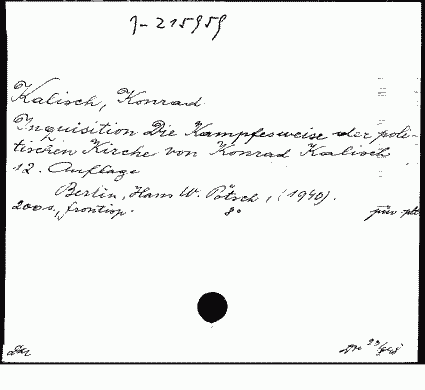 J-215959
Kalisch, Konrad
Inquisition Die Kampfesweise der poli-
tischen Kirche von Konrad Kalisch
12. Auflage
Berlin, Hans W. Pötsch, (1940).
200 s., frontisp. 8°